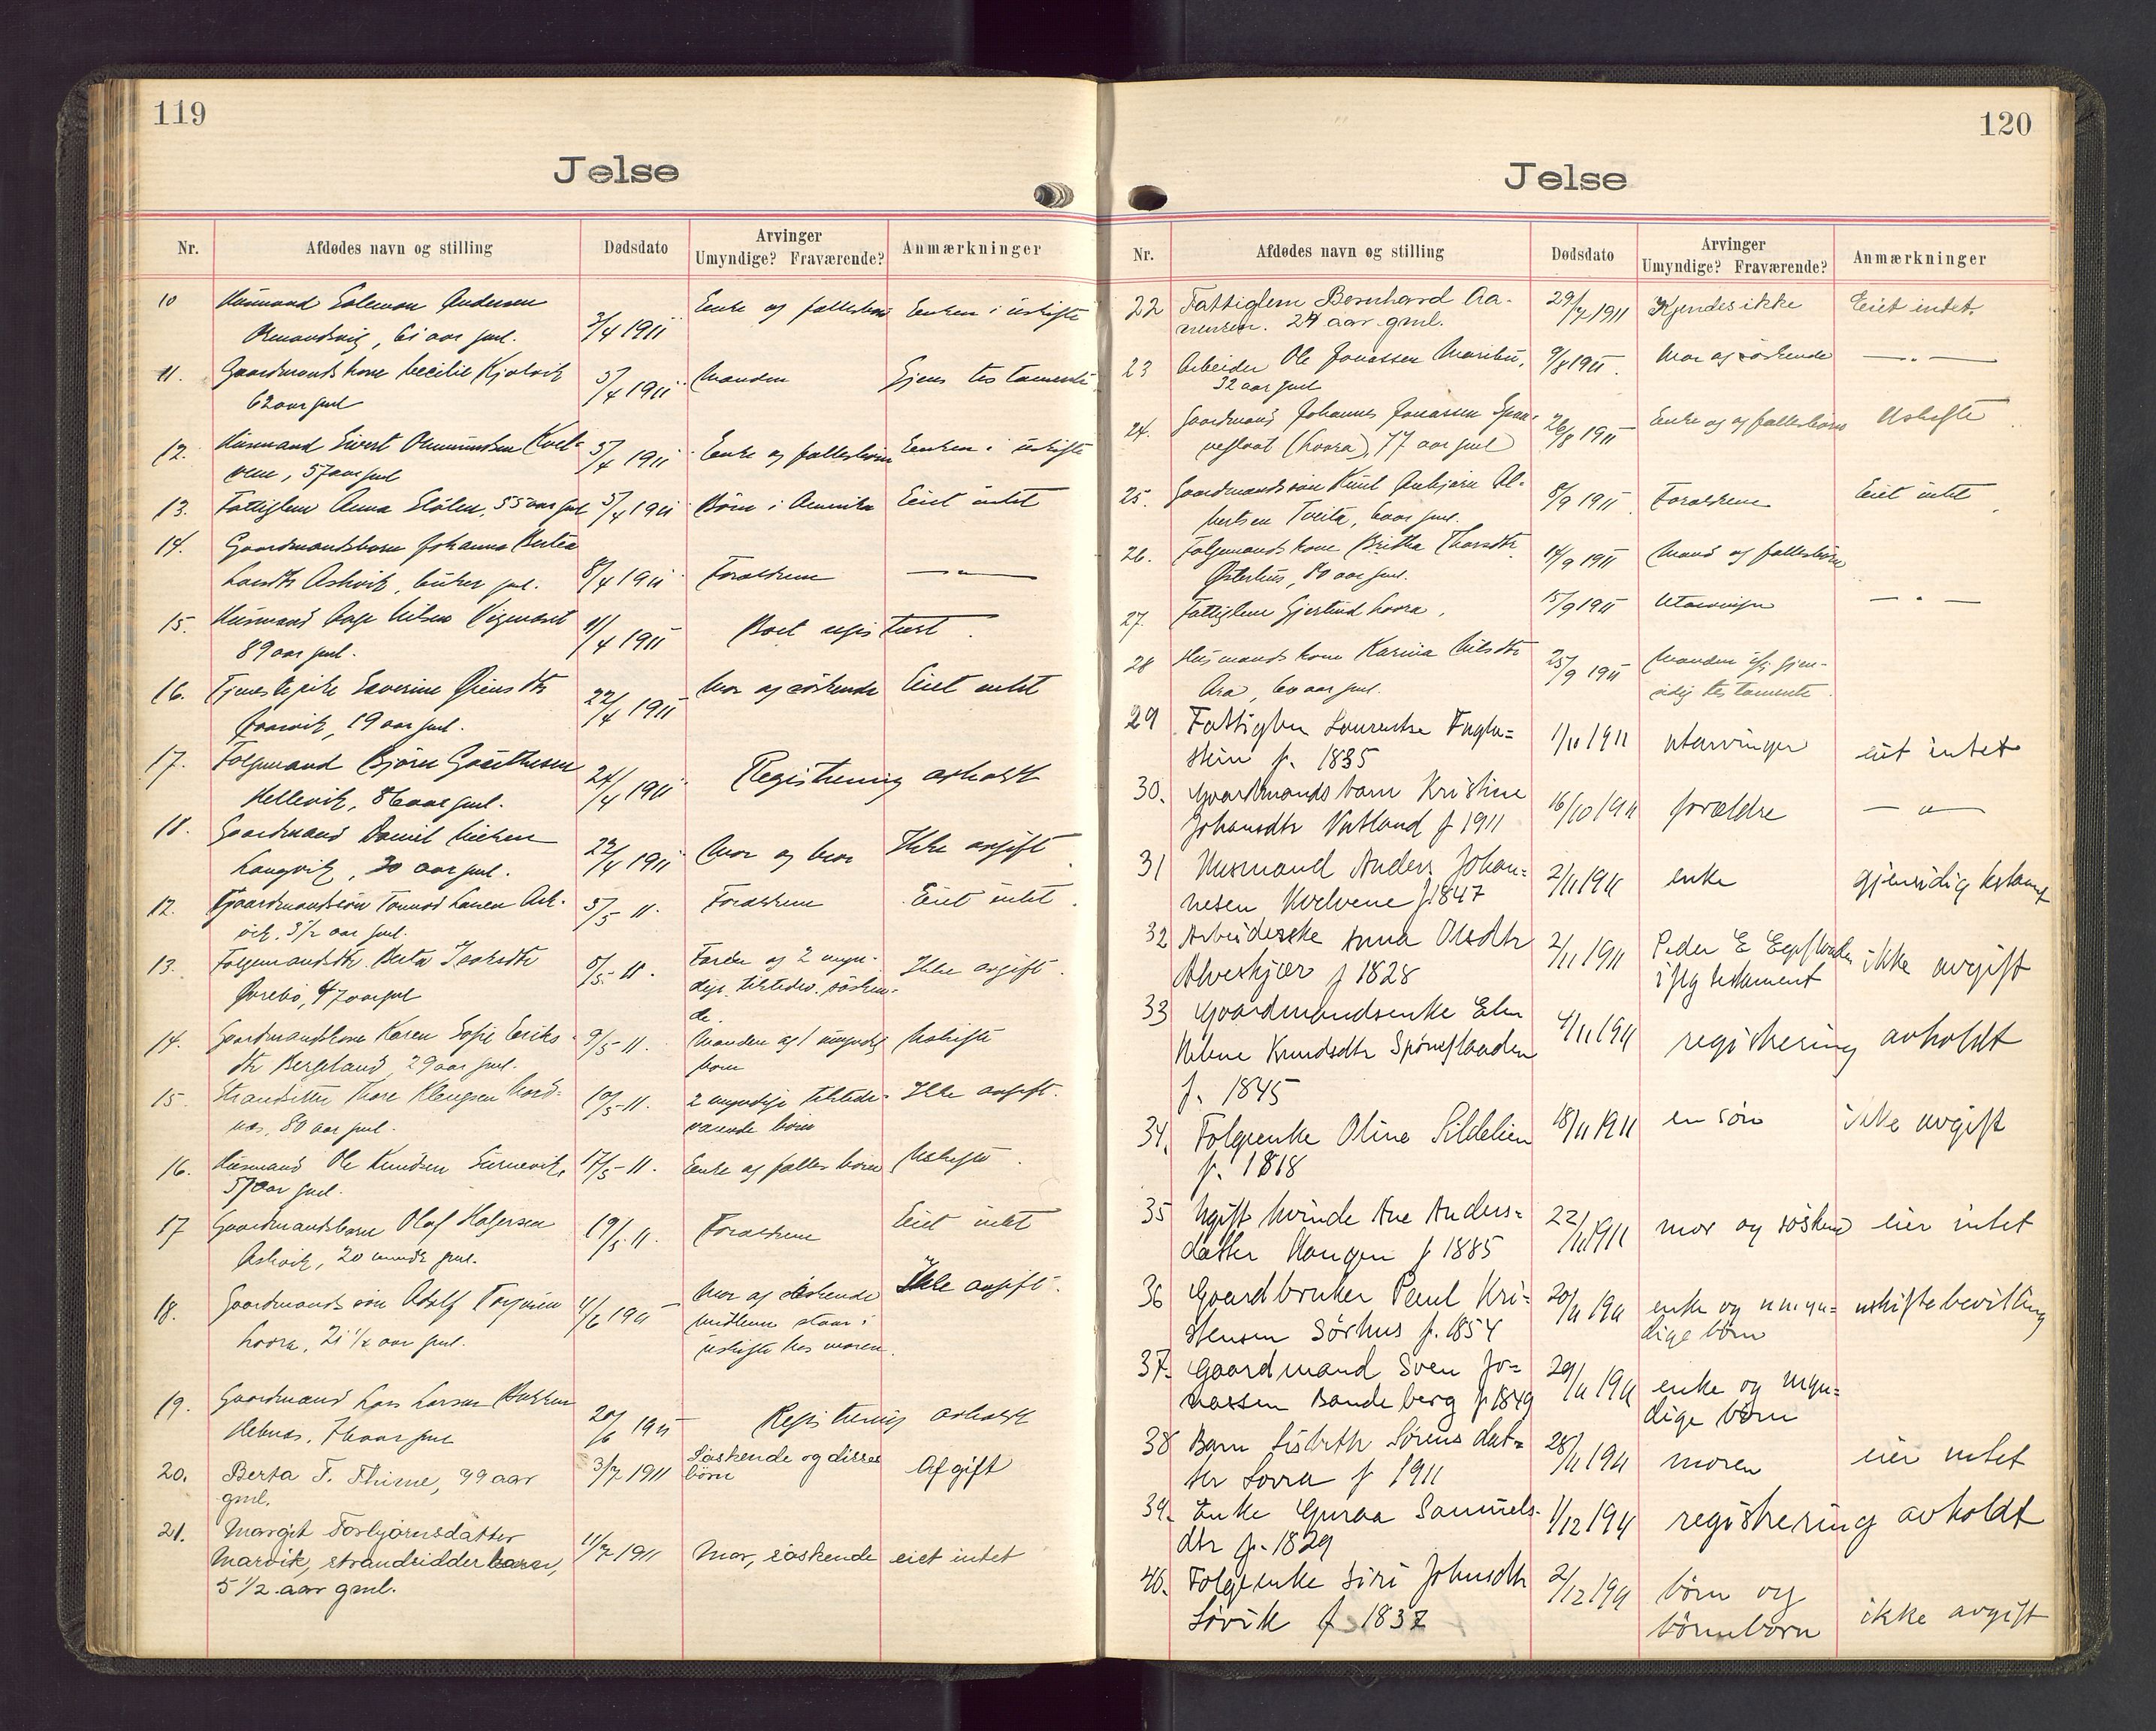 119
Jelse
Nr. Afdødes navn og stilling Dødsdato Arvinger Umyndige? Fraværende? Anmærkninger
10 Husmand Salomon Andersen 3/4 1911 Enke og fællesbørn Enken i uskifte
61 aar gml.
11. Gaardmandskone Cecilie Kjølvik 5/4 1911 Manden Gjens testamente
62 aar gml
12. Husmand Sivert 5/4 1911 Enke og fællesbørn Enken i uskifte
57 aar gml
13. Fattiglem Anna 55 aar gml 5/4 1911 Børn i Amerika Eiet intet
14. Gaardmandsbarn Johanna Bertea
Larsdtr Askvik, 6 uker gml. 8/4 1911 Forældrene — " —
15. Husmand Aage Nilsen 11/4 1911 Boet registrert.
89 aar gml.
16. Tjenestepike Severine 22/4 1911 Mor og søskende Eiet intet
19 aar gml.
17. Folgemand Bjørn Gauthesen 24/4 1911 Registrering avholdt
Hellevik, 86 aar gml.
18. Gaardmand Daniel 22/4 1911 Mor og bror Ikke avgift
Langvik, 30 aar gml.
12. Gaardmandssøn Tormod Larsen Ask- 5/5 11. Forældrene Eiet intet.
vik, 3 1/2 aar gml.
13. Folgemandsdtr. Berta 8/5 11. Faren og 2 myn- Ikke avgift.
47 aar gml dige tilstedev. søsken-
de.
14. Gaardmandskone Karen Sofie Eriks- 9/5 11. Manden og 1 umyndig Uskifte
dtr Bergeland, 29 aar gml. barn
15. Strandsitter Thore 10/5 11. 2 myndige tilstede- Ikke avgift.
80 aar gml. værende børn
16. Husmand Ole Knudsen 17/5 11. Enke og fælles børn Uskifte.
57 aar gml.
17 Gaardmandsbarn Olaf 19/5 11. Forældrene Eiet intet
Askvik, 20 gml.
18. Gaardmandssøn Adolf 4/6 1911 Mor og søskende Ikke avgift.
Lovra, 21 1/2 aar gml. midlene staar i
uskifte hos moren.
19. Gaardmand Lars Larsen Bakken
Hebnes, 76 aar gml 20/6 1911 Registrering avholdt
20. Berta T. Thime, 99 aar 3/7 1911 Søskende og disses Afgift
gml. børn
21. Margit Torbjørnsdatter
Marvik, strandsidderbarn, 11/7 1911 Mor, søskende eiet intet
5 1/2 aar gml.
120
Jelse
Nr. Afdødes navn og stilling Dødsdato Arvinger Umyndige? Fraværende? Anmærkninger
22 Fattiglem Bernhard Aa- 29/7 1911 Kjendes ikke Eiet intet.
nensen. 24 aar gml.
23 Arbeider Ole Jonassen Maribu, 9/8 1911. Mor og søskende — " —
32 aar gml
24. Gaardmand Johannes Jonassen 26/8 1911 Enke og fællesbørn Uskifte
(Lovra), 77 aar gml
25. Gaardmandssøn Knut Al- 8/9 1911 Forældrene Eiet intet
bertsen Tveita, 6 aar gml.
26. Folgemandskone Britha Thorsdtr 14/9 1911 Mand og fællesbørn
Østerhus, 80 aar gml.
27. Fattiglem Gjertrud Lovra, 15/9 1911 Utarvinger — " —
28 Husmandskone Karina Nilsdtr 25/9 1911 Manden iflg gjen-
Ara, 60 aar gml. sidig testamente.
29 Fattiglem Laurentse Fugle=
stein f. 1835 1/10 1911 utarvinger eiet intet
30. Gaardmandsbarn Kristine
Johansdtr Vatland f 1911 16/10 1911 forældre — " —
31 Husmand Anders Johan=
nesen Kvelvene f 1847 2/11 1911 enke gjensidig testamt
32 Arbeiderske Anna Olsdtr
Alveskjær f 1828 2/11 1911 Peder E ikke avgift
iflg testament
33 Gaardmandsenke Elen
Helene Knudsdtr 4/11 1911 registrering avholdt
f. 1845
34. Folgeenke Oline Sildelien 18/11 1911 en søn ikke avgift
f. 1818
35 Ugift kvinde Ane Anders=
datter Haugen f 1885 22/11 1911 mor og søskend eier intet
36 Gaardbruker Paul Kri=
stensen Sørhus f. 1854 20/11 1911 enke og umyn= uskiftebevilling
dige børn
37. Gaardmand Sven Jo=
nassen Bandeberg f 1849 20/11 1911 enke og myn=
dige børn
38 Barn Lisbeth Sørens dat=
ter Lovra f 1911 28/11 1911 moren eier intet
39. Enke Guraa Samuels-
dtr f. 1829 1/12 1911 registrering avholdt
40. Folgeenke Siri Johnsdtr
Løvik f 1837 2/12 1911 børn og ikke avgift
børnebørn